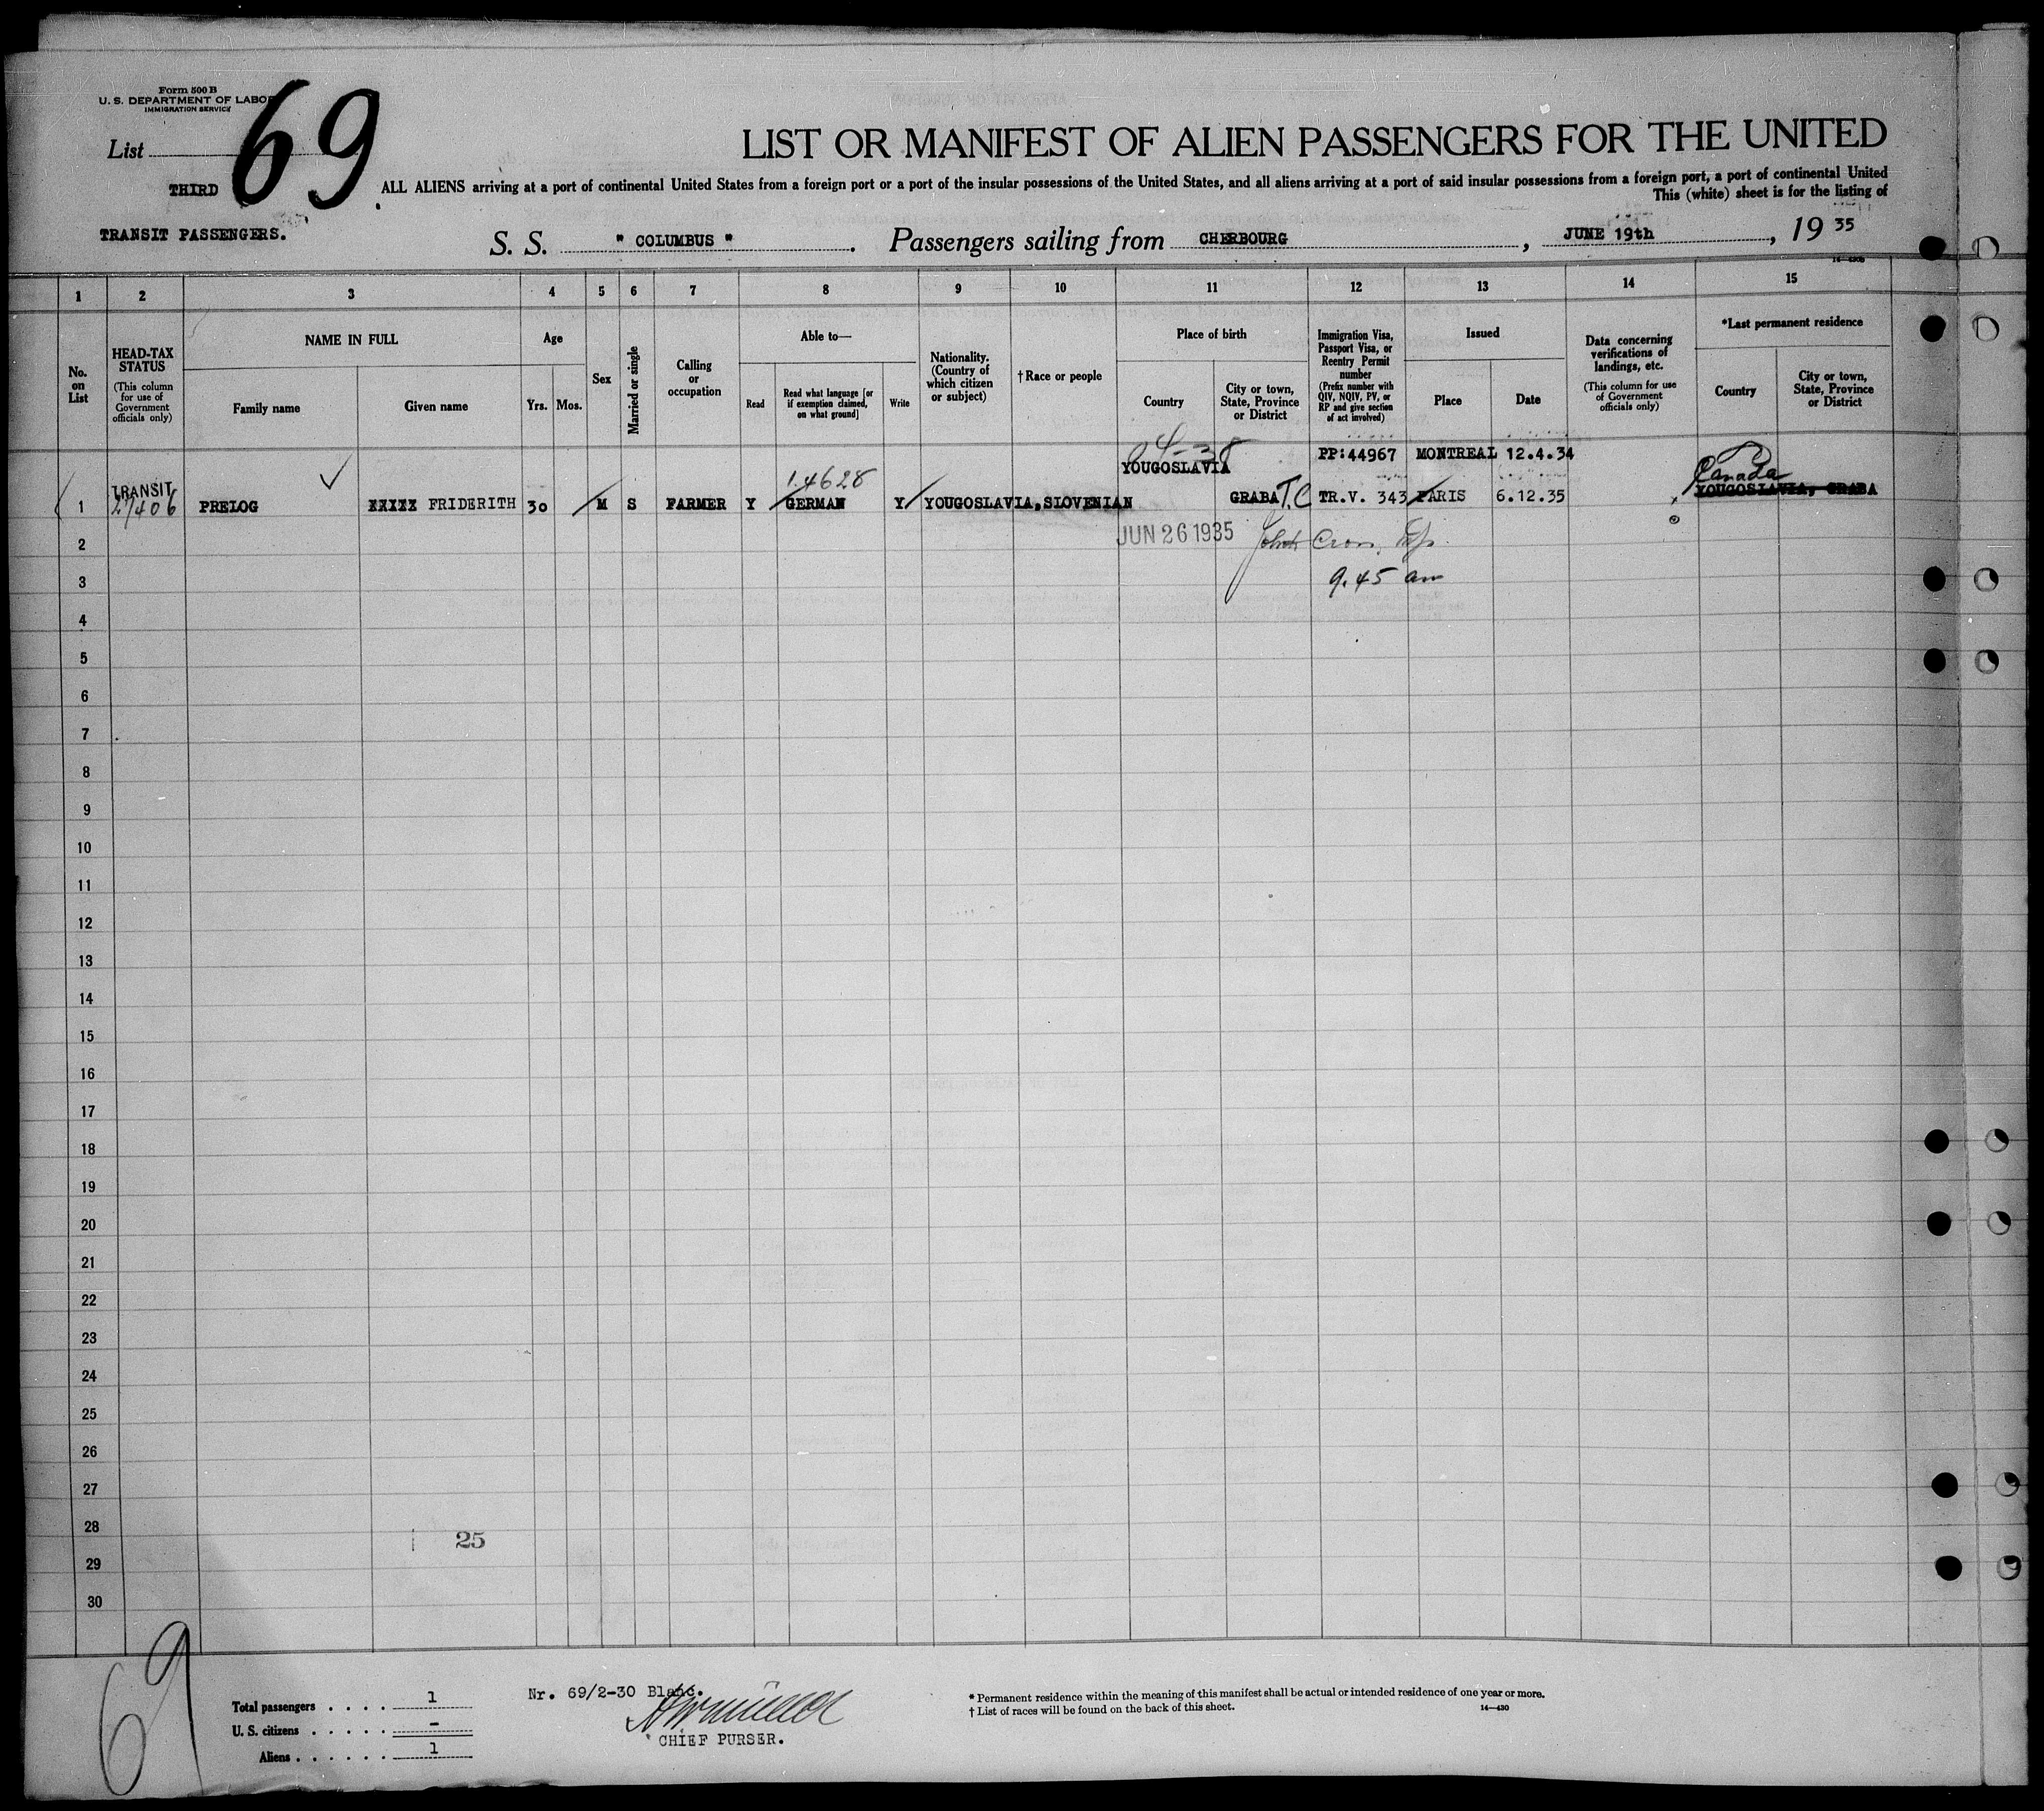 Form 500 B
U. S. DEPARTMENT OF LABOR
IMMIGRATION SERVICE
List 69
THIRD
TRANSIT PASSENGERS.
LIST OR MANIFEST OF ALIEN PASSENGERS FOR THE UNITED
ALL ALIENS arriving at a port of continental United States from a foreign port or a port of the insular possessions of the United States, and all aliens arriving at a port of said insular possessions from a foreign port, a port of continental United
This (white) sheet is for the listing of
S. S. " COLUMBUS " . Passengers sailing from CHERBOURG , JUNE 19th , 19 35
1 2 3 4 5 6 7 8 9 10 11 12 13 14 15
No. on List
HEAD-TAX STATUS
(This column for use of Government officials only)
NAME IN FULL
Family name
Given name
Age
Yrs. Mos.
Sex
Married or single
Calling or occupation
Able to—
Read
Read what language [or if exemption claimed, on what ground]
Write
Nationality. (Country of which citizen or subject)
†Race or people
Place of birth
Country
City or town, State, Province or District
Immigration Visa, Passport Visa, or Reentry Permit number
(Prefix number with QIV, NQIV, PV, or RP and give section of act involved)
Issued
Place
Date
Data concerning verifications of landings, etc.
(This column for use of Government officials only)
*Last permanent residence
Country
City or town, State, Province or District
YOUGOSLAVIA PP:44967 MONTREAL 12.4.34
14628
Canada
TRANSIT
1 27406 PRELOG XXXXX FRIDERITH 30 M S FARMER Y GERMAN Y YOUGOSLAVIA,SLOVENIAN GRABA T.C TR.V. 343 PARIS 6.12.35 YOUGOSLAVIA, GRABA
2 JUN 26 1935
3 9.45 am
4
5
6
7
8
9
10
11
12
13
14
15
16
17
18
19
20
21
22
23
24
25
26
27
28 25
29
30
69
Total passengers . . . . 1
U. S. citizens . . . . . –
Aliens . . . . . . 1
Nr. 69/2-30 Blanc.
CHIEF PURSER.
* Permanent residence within the meaning of this manifest shall be actual or intended residence of one year or more.
† List of races will be found on the back of this sheet.
14—430